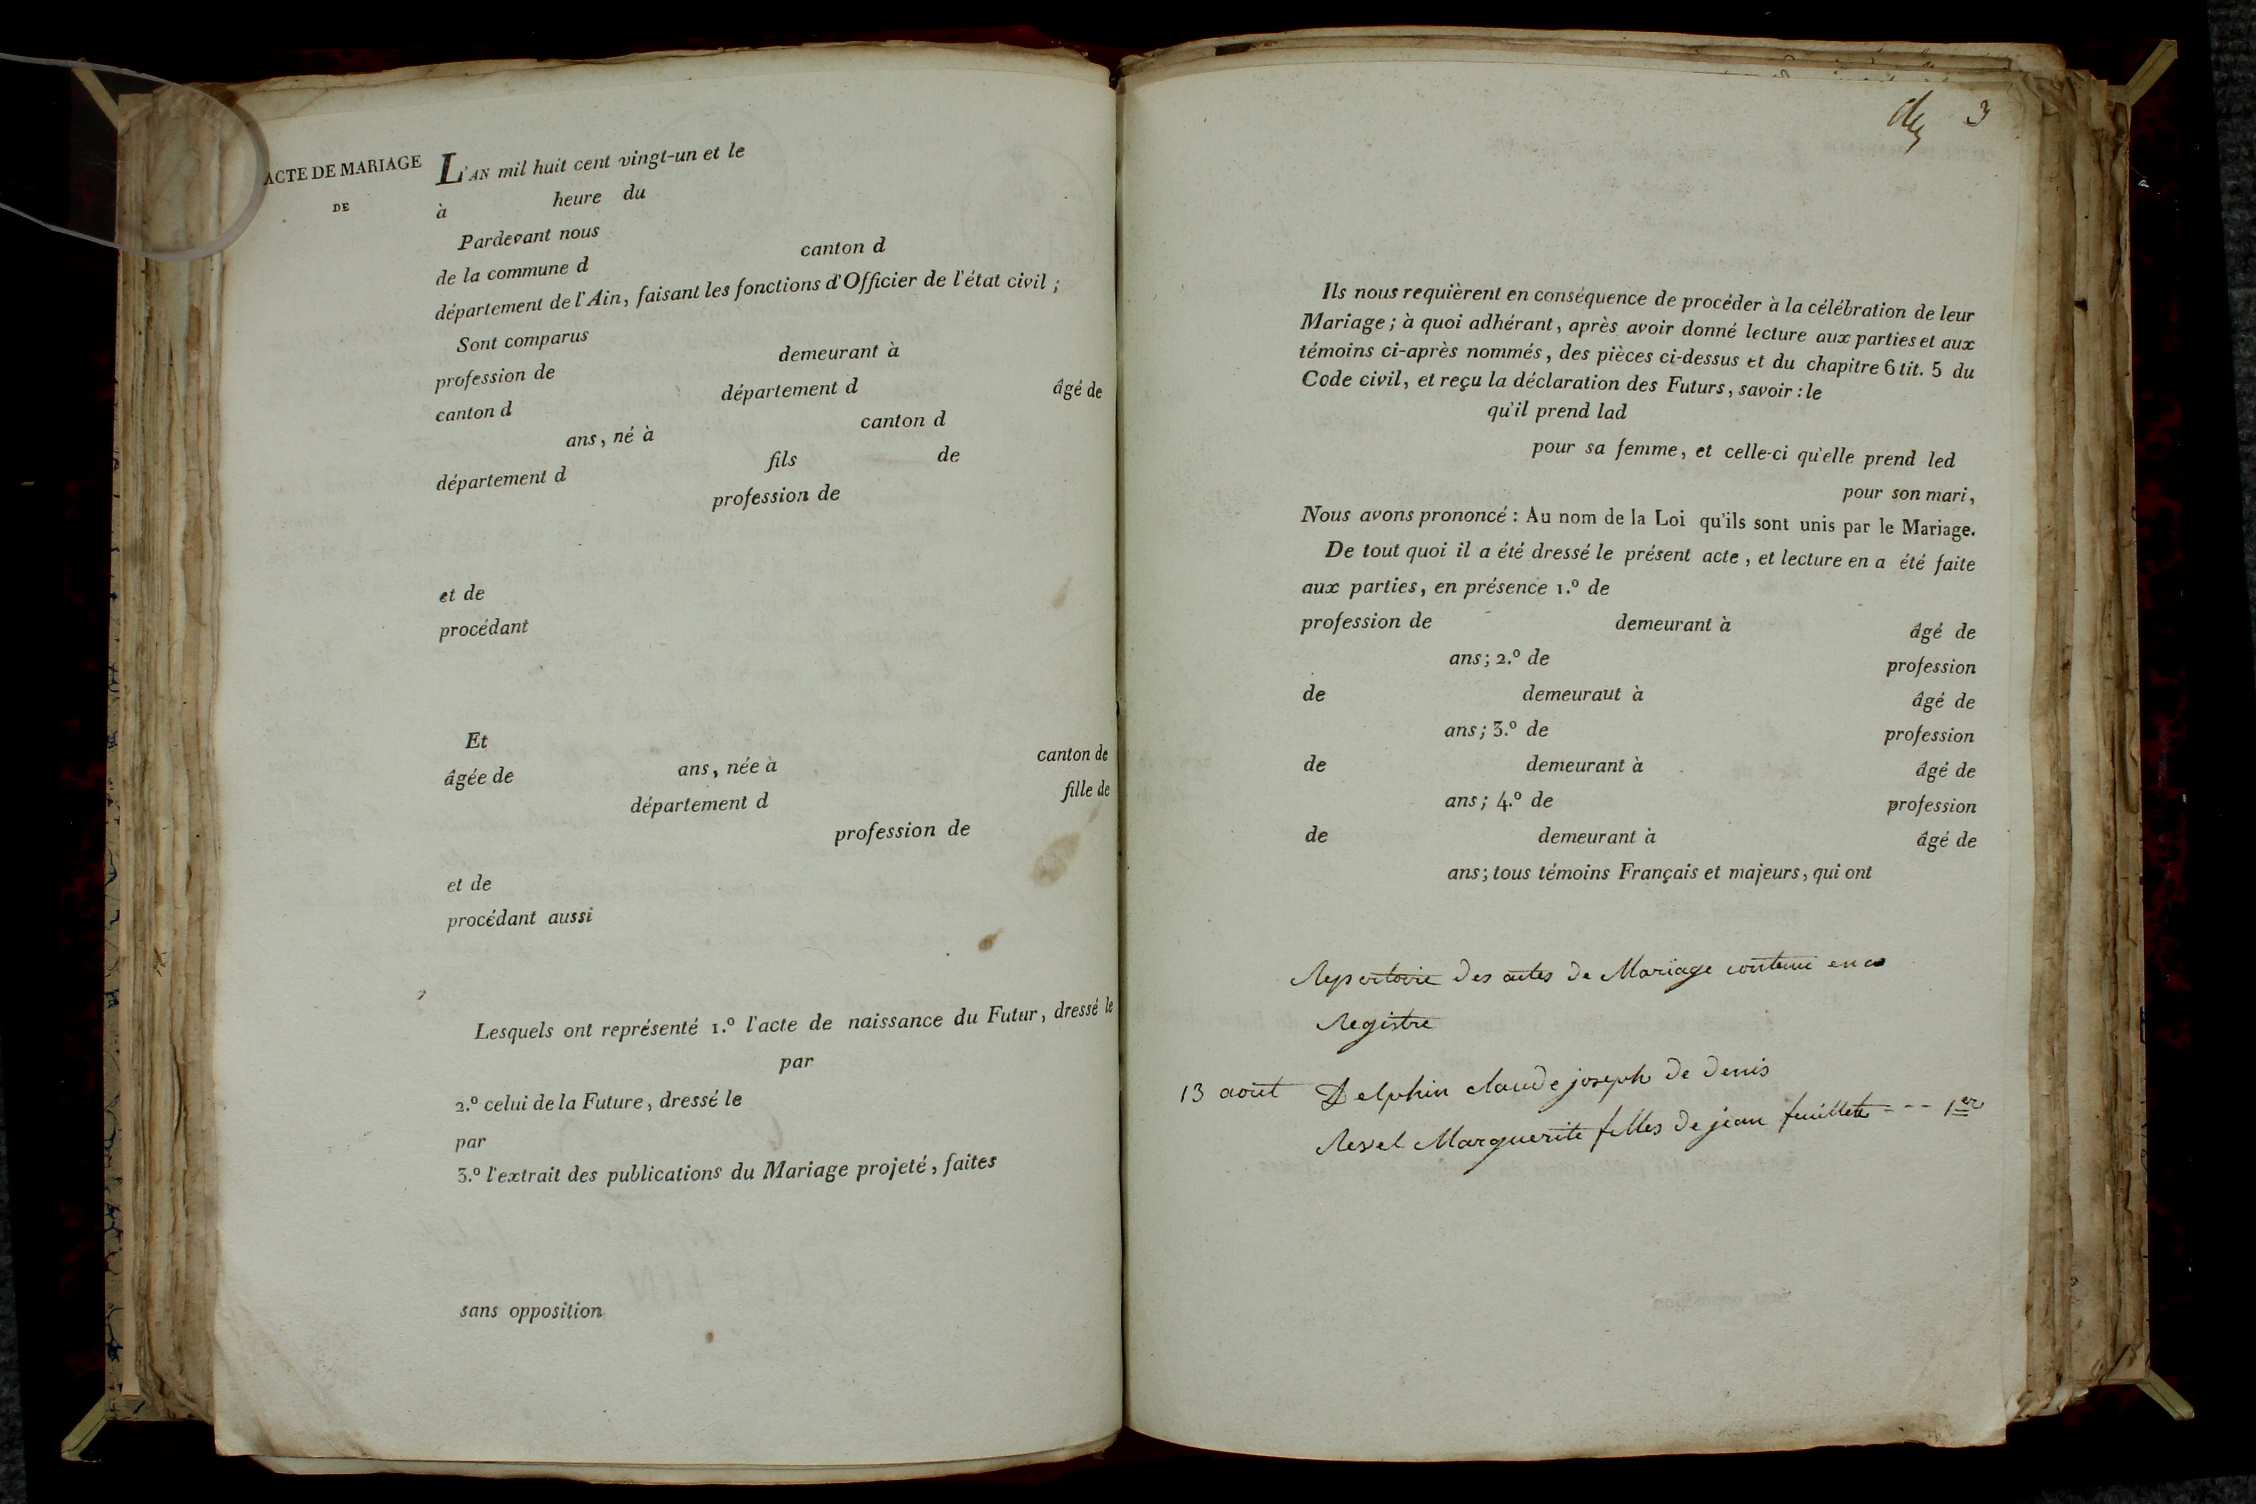 ACTE DE MARIAGE
DE
L'AN mil huit cent vingt-un et le
à heure du
Pardevant nous
de la commune d canton d
département de l'Ain, faisant les fonctions d'Officier de l'état civil ;
Sont comparus
profession de demeurant à
canton d département d âgé de
ans, né à canton d
département d fils de
profession de
et de
procédant
Et
âgée de ans, née à canton de
département d fille de
profession de
et de
procédant aussi
Lesquels ont représenté 1.º l'acte de naissance du Futur, dressé le
par
2.º celui de la Future, dressé le
par
3.º l'extrait des publications du Mariage projeté, faites
sans opposition
3
Ils nous requièrent en conséquence de procéder à la célébration de leur
Mariage ; à quoi adhérant, après avoir donné lecture aux parties et aux
témoins ci-après nommés, des pièces ci-dessus et du chapitre 6 tit. 5 du
Code civil, et reçu la déclaration des Futurs, savoir : le
qu'il prend lad
pour sa femme, et celle-ci qu'elle prend led
pour son mari,
Nous avons prononcé : Au nom de la Loi qu'ils sont unis par le Mariage.
De tout quoi il a été dressé le présent acte, et lecture en a été faite
aux parties, en présence 1.º de
profession de demeurant à âgé de
ans ; 2.º de profession
de demeuraut à âgé de
ans ; 3.º de profession
de demeurant à âgé de
ans ; 4.º de profession
de demeurant à âgé de
ans ; tous témoins Français et majeurs, qui ont
Repertoire des actes de Mariage contenu en ce
Registre
13 août Delphin claude joseph de denis
Revel Marguerite filles de jean feuillett - - - 1er